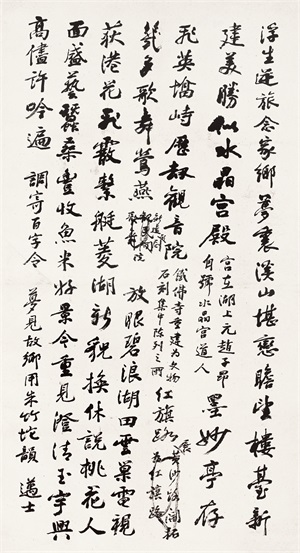 浮生逆旅念家鄉夢裏溪山堪戀瞻望樓臺新
建美勝似水晶宮殿 宮在湖上元趙子昂自號水晶宮道人 墨妙亭存
飛英墖峙歷劫觀音院 佛寺重建為文物石刻集中陳列之所 紅旗路 黃沙路開拓為紅旗路
幾多歌舞鶯燕 放眼碧浪湖田雲巢電視
荻港花飛霰繫艇菱湖新貌換休說桃花人
面盛藝蠶桑豐收魚米好景今重見澄清玉宇興
高儘許吟遍 調寄百字令 夢見故鄉用朱竹垞韻 邁士